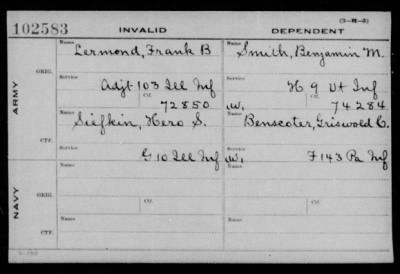 (3-111-5)
102583 INVALID DEPENDENT
Name Name
Lermond, Frank B Smith, Benjamin M.
ORIG.
Service Service
Adjt 103 Ill Inf H 9 Vt Inf
Ctf. Ctf.
72850 W. 74284
ARMY
Name Name
Siefkin, Hero S. Benscoter, Griswold C.
CTF.
Service Service
G 10 Ill Inf W. F 143 Pa Inf
Name Name
ORIG.
Service Ctf. Service Ctf.
NAVY
Name Name
CTF.
Service Service